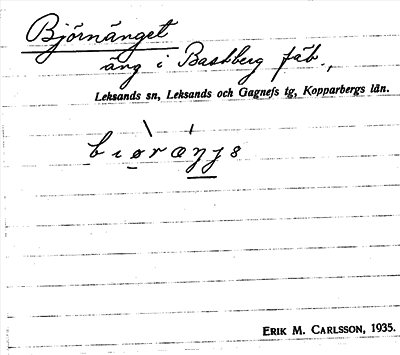 Björnänget
äng i Bastberg fäb.,
Leksands sn, Leksands och Gagnefs tg, Kopparbergs län.
ERIK M. CARLSSON, 1935.